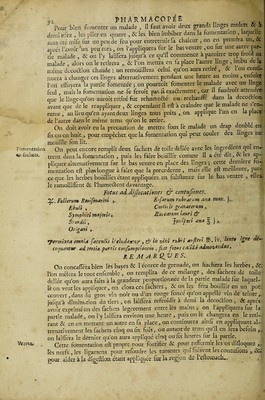 92 PHARMACOPÉE
Pour bien fomenter un malade, il faut avoir deux grands linges molets &
demi usez, les plier en quatre, & les bien imbiber dans la fomentation, laquelle
aura été mise sur un peu de feu pour entretenir sa chaleur, on en prendra un, &
après l'avoir un peu exprimé, on l'appliquera sur le bas ventre, ou sur une autre partie
malade, & on l'y laissera jusqu'à ce qu'il commence à paroître trop froid au
malade, alors on le retirera, & l'on mettra en sa place l'autre linge, imbu de la
même décoction chaude; on remouillera celui qu'on aura retiré, & l'on continuera
à changer ces linges alternativement pendant une heure au moins, ensuite
l'on essuyera la partie fomentée; on pourroit fomenter le malade avec un linge
seul, mais la fomentation ne se feroit pas si exactement, car il faudroit attendre
que le linge qu'on auroit retiré fut rehumecté ou rechauffé dans la décoction
avant que de le rappliquer, & cependant il est à craindre que le malade ne s'enrhume,
au lieu qu'en ayant deux linges tout prêts, on applique l'un en la place
de l'autre dans le même tems qu'on le retire.
On doit avoir en la précaution de mettre sous le malade un drap double en
six ou en huit, pour empêcher que la fomentation qui peut couler des linges ne
mouille son lit.
Fomentation
en sachets.
On peut encore remplir deux sachets de toile déliée avec les ingrediens qui entrent
dans la fomentation, puis les faire bouillir comme il a été dit, & les appliquer
alternativement sur le bas ventre en place des linges; cette derniere fomentation
est plus longue à faire que la précedente, mais elle est meilleure, parce
que les herbes bouillies étant appliquées en substance sur le bas ventre, elles
le ramollissent & l'humectent davantage.
Fotus ad dislocationes & contusiones.
℞. Pulverum Rorismarini,
Ebuli,
Symphiti majoris,
Scordii,
Origani,
Rosarum rubrarum ana man. j.
Corticis granatorum,
Baccarum lauri &
Juniperi ana ℥ j.
REMARQUES.
On concassera bien les bayes & l'écorce de grenade, on hachera les herbes, &
l'on mêlera le tout ensemble, on remplira de ce mélange, des sachets de toile
déliée qu'on aura faits à la grandeur proportionnée de la partie malade sur laquelle
on veut les appliquer, on clora ces sachets, & on les fera bouillir en un pot
couvert, dans du gros vin noir ou du rouge foncé qu'on appelle vin de teinte,
jusqu'à diminution du tiers, on laissera refroidir à demi la décoction, & après
avoir exprimé un des sachets legerement entre les mains, on l'appliquera sur la
partie malade, on l'y laissera environ une heure, puis on le changera en le retirant
& en en mettant un autre en sa place, on continuera ainsi en appliquant alternativement
les sachets cinq ou six fois, ou autant de tems qu'il en sera besoin,
on laissera le dernier qu'on aura appliqué cinq ou six heures sur la partie.
Vertus.
Cette fomentation est propre pour fortifier & pour raffermir les os disloquez,
les nerfs, les ligamens, pour resoudre les tumeurs qui suivent les contusions, &
pour aider à la digestion étant appliquée sur la region de l'estomach.